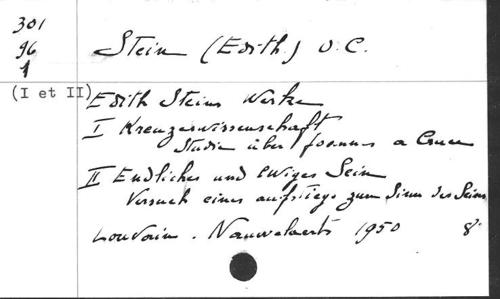 301
96
1
(I et II)
Stein (Edith) O.C.
Edith Steins Werke
I Kreuzeswissenschaft
Studie über Joannes a Cruce
II Endliches und Ewiges Sein
Versuch eines aufstiegs zum Sinn des Seins
Louvain. Nauwelaerts 1950 8°